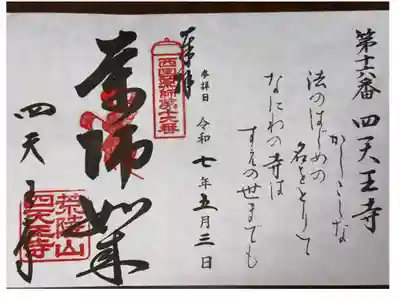 第十六番 四天王寺
かしこしな
法のはじめの
名をとりて
なにわの寺は
すえの世までも
参拝日 令和七年五月三日
奉拝
西国薬師第十六番
薬師如来
四天王寺
荒陵山
四天王寺